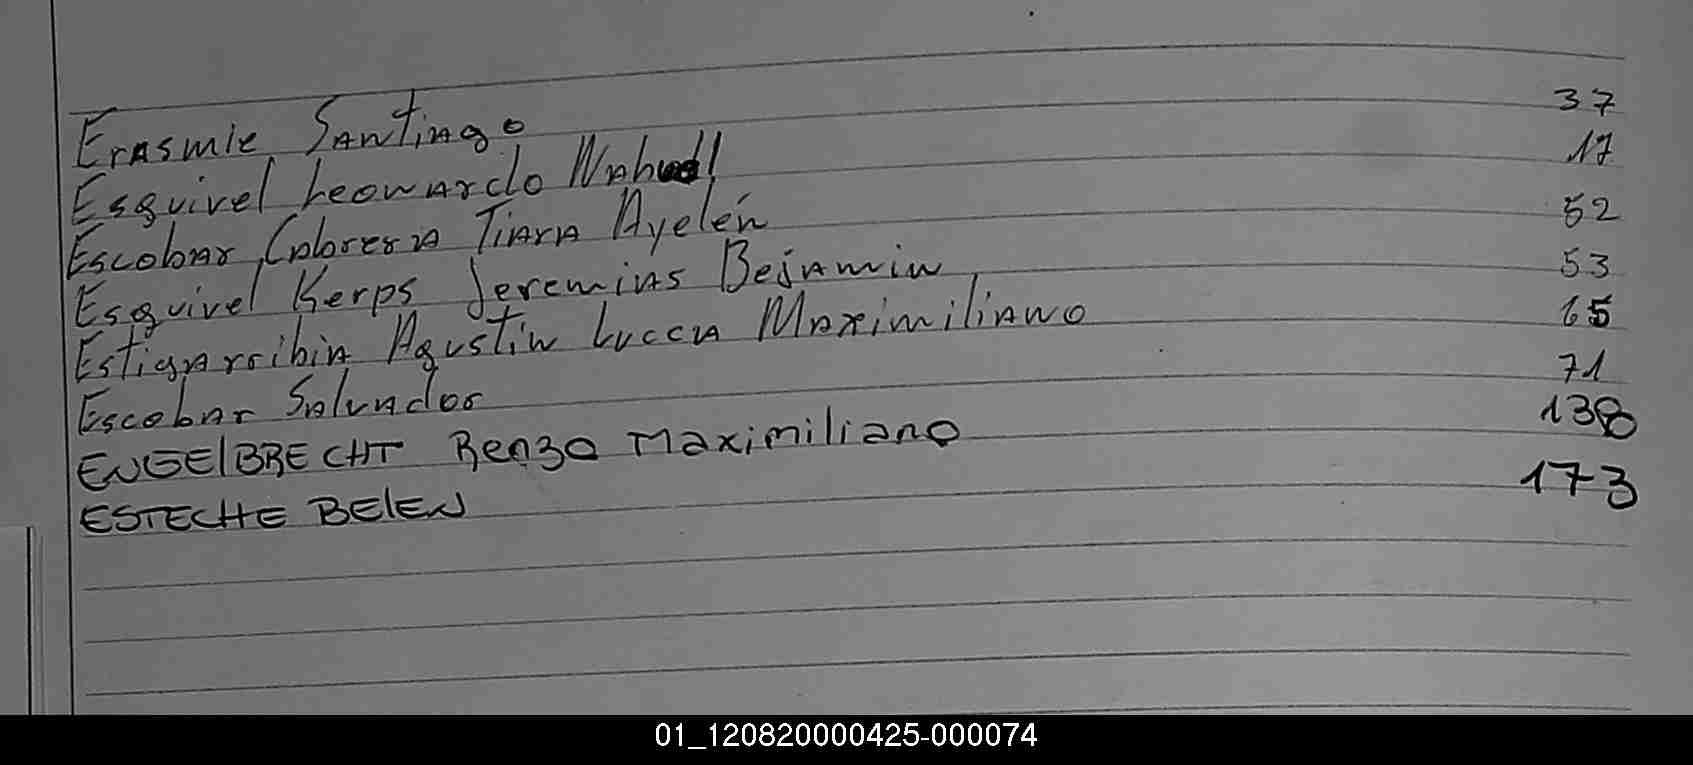 Erasmie Santiago 37
Esquivel Leonardo Nahuel 17
Escobar Cabrera Tiara Ayelén 52
Esquivel Kerps Jeremias Bejamin 53
Estigarribia Agustin Lucca Maximiliano 65
Escobar Salvador 71
ENGElBRECHT Renzo Maximiliano 138
ESTECHE BElEN 173
01_120820000425-000074